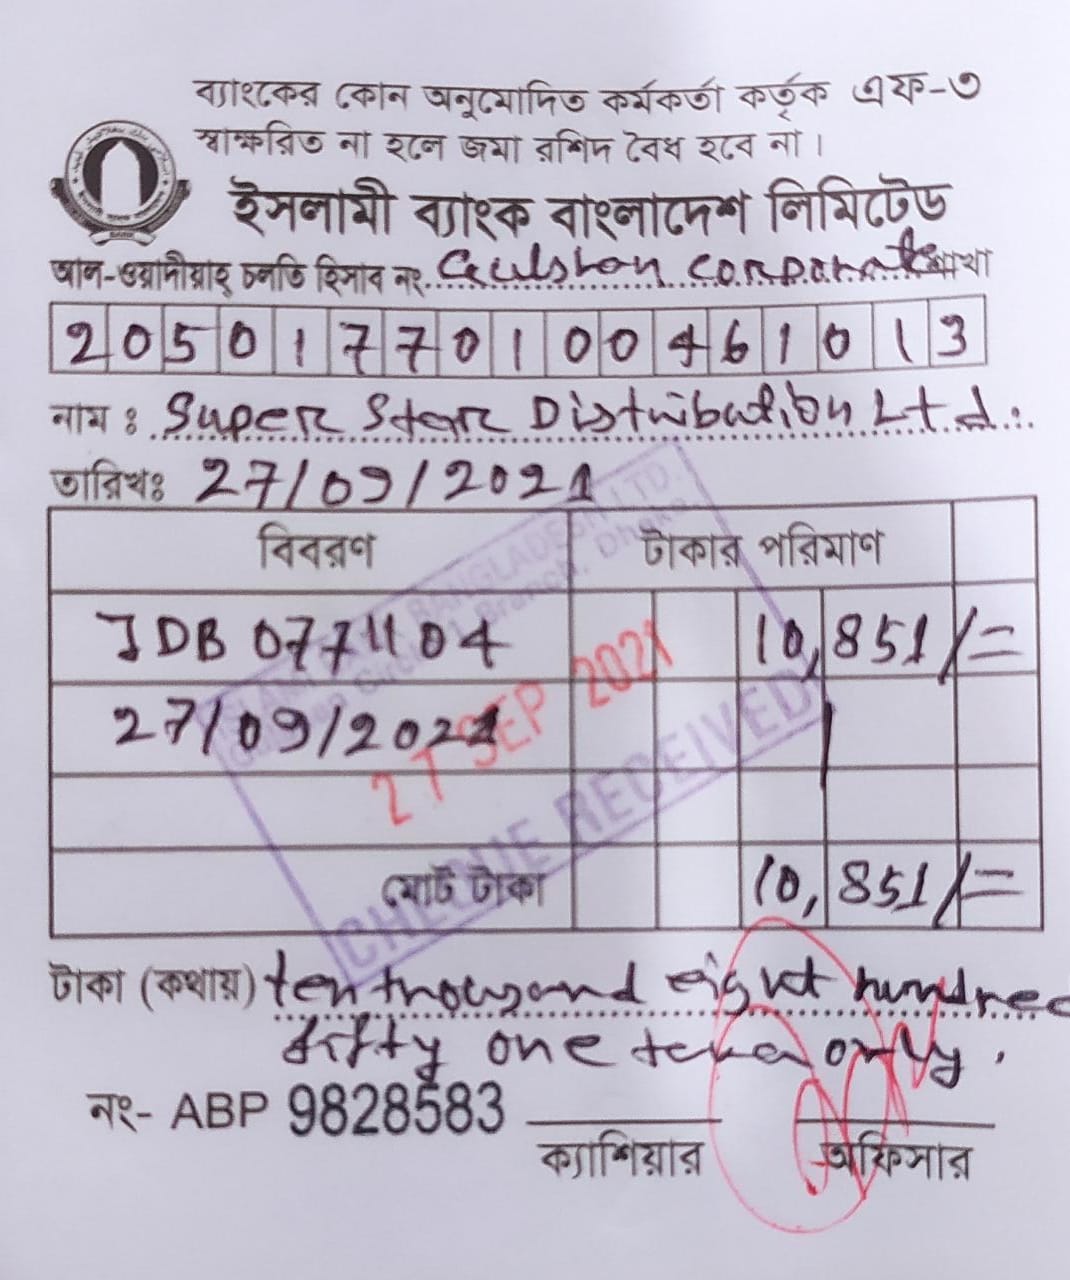 ব্যাংকের কোন অনুমোদিত কর্মকর্তা কর্তৃক এফ-৩
স্বাক্ষরিত না হলে জমা রশিদ বৈধ হবে না।
ইসলামী ব্যাংক বাংলাদেশ লিমিটেড
আল-ওয়াদীয়াহ্ চলতি হিসাব নং Gulshan Corporate শাখা
20501770100461013
নাম : Super Star Distribution Ltd.
তারিখঃ 27/09/2021
বিবরণ টাকার পরিমাণ
IDB 0771104 10,851/=
27/09/2021
27 SEP 2021
CHEQUE RECEIVED
মোট টাকা 10,851/=
টাকা (কথায়) ten thousand eight hundred
fifty one taka only.
নং- ABP 9828583
ক্যাশিয়ার অফিসার